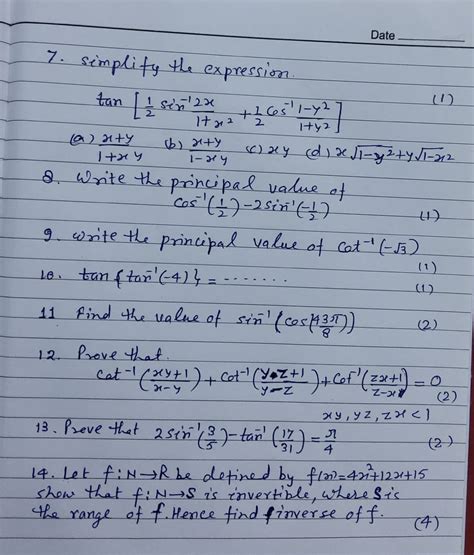 Date
7. simplify the expression.
tan [ 1/2 sin⁻¹ 2x/1+x² + 1/2 cos⁻¹ 1-y²/1+y² ] (1)
(a) x+y/1+xy (b) x+y/1-xy (c) xy (d) x√1-y²+y√1-x²
8. Write the principal value of
cos⁻¹(1/2)-2sin⁻¹(-1/2) (1)
9. write the principal value of cot⁻¹(-√3)
(1)
10. tan{tan⁻¹(-4)} = ....... (1)
11 Find the value of sin⁻¹(cos(43π/8)) (2)
12. Prove that.
cot⁻¹(xy+1/x-y)+cot⁻¹(yz+1/y-z)+cot⁻¹(zx+1/z-x)=0
(2)
xy, yz, zx < 1
13. Prove that 2sin⁻¹(3/5)-tan⁻¹(17/31)=π/4 (2)
14. Let f:N→R be defined by f(x)=4x²+12x+15
show that f:N→S is invertible, where S is
the range of f. Hence find inverse of f. (4)